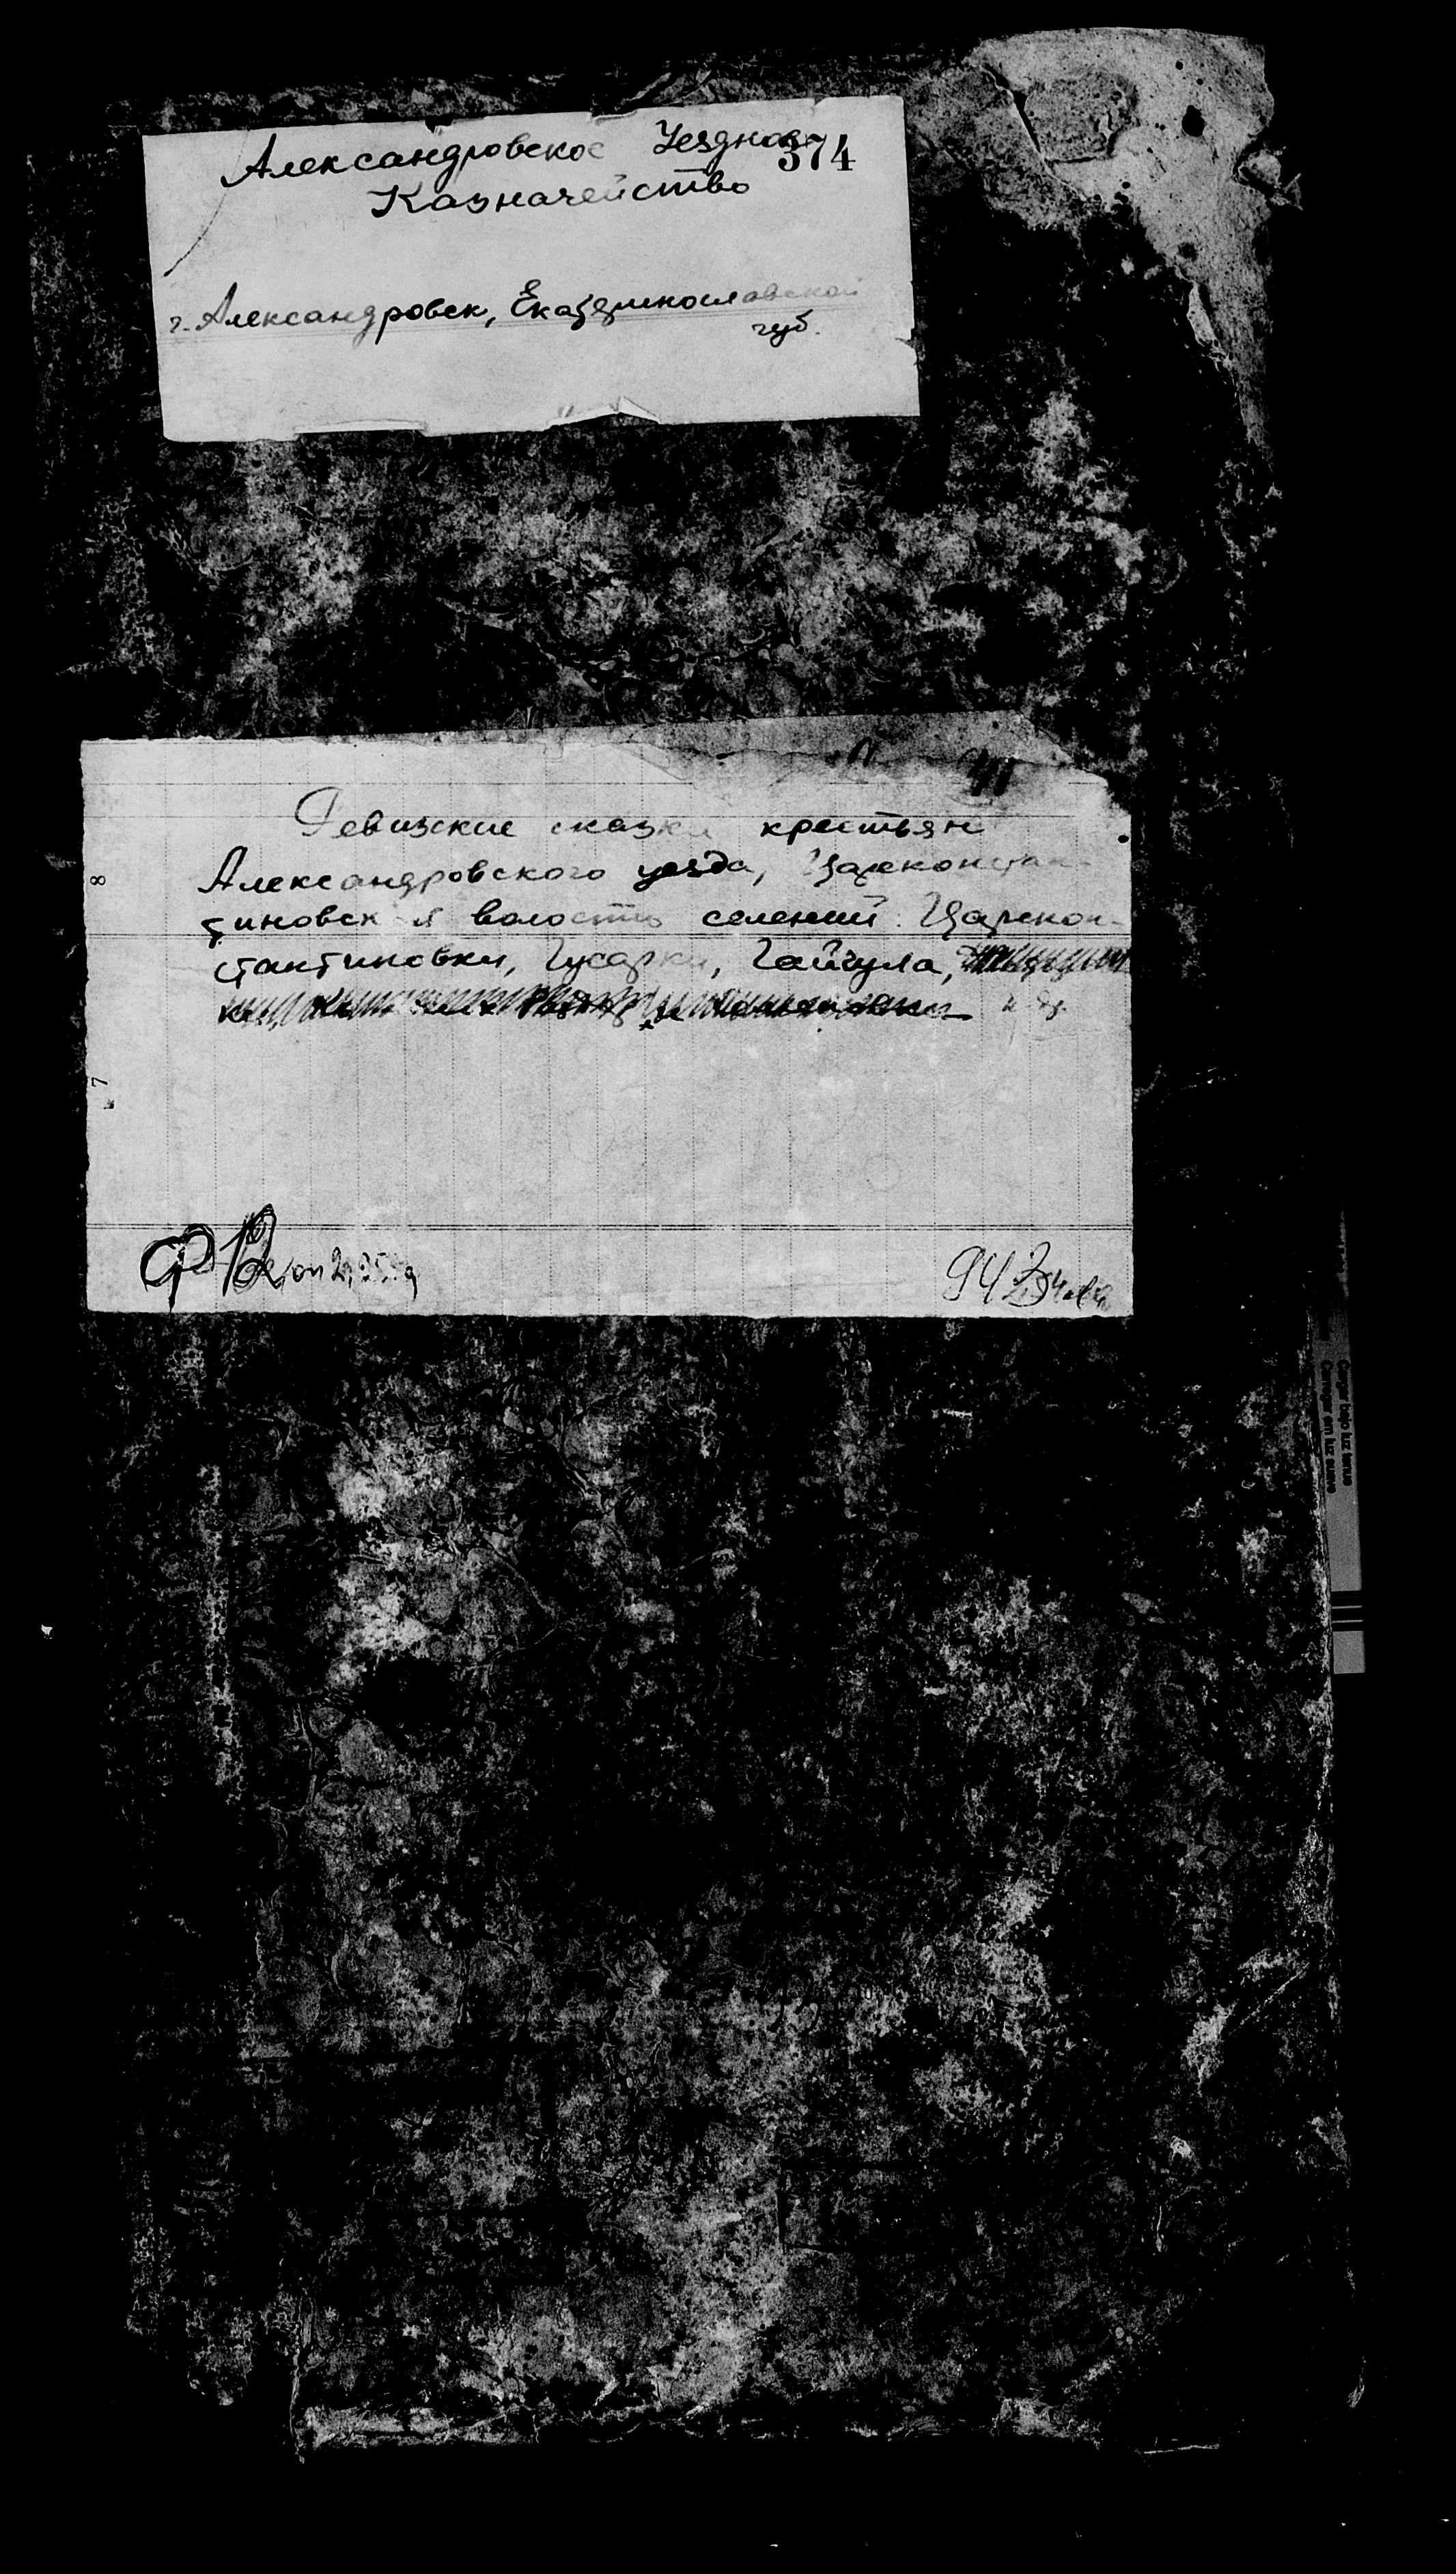 Александровское Уездное
374
Казначейство
г. Александровск, Екатеринославской
губ.
Ревизские сказки крестьян
Александровского уезда, Цареконстан-
тиновской волости селений: Царекон-
стантиновки, Гусарки, Гайчула,
и др.
8
7
оп 2,
942